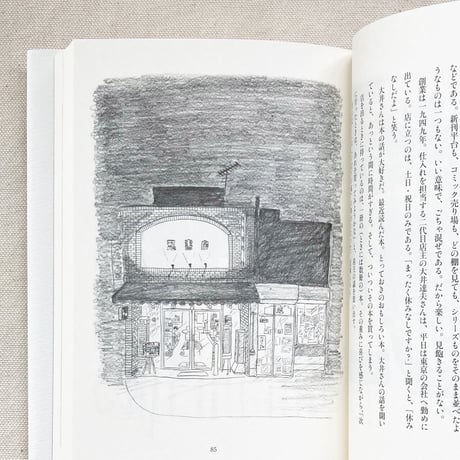 などである。新刊平台も、コミック売り場も、どの棚を見ても、シリーズものをそのまま並べたよ
うなものは一つもない。いい意味で、ごちゃ混ぜである。だから楽しい。見飽きることがない。
創業は一九四九年。仕入れを担当する二代目店主の大井達夫さんは、平日は東京の会社へ勤めに
出ている。店に立つのは、土日・祝日のみである。「まったく休みなしですか?」と聞くと、「休み
なしだよ」と笑う。
大井さんは本の話が大好きだ。最近読んだ本、とっておきのおもしろい本。大井さんの話を聞い
ていると、あっという間に時間がすぎる。そして、ついついその本を買ってしまう。
85